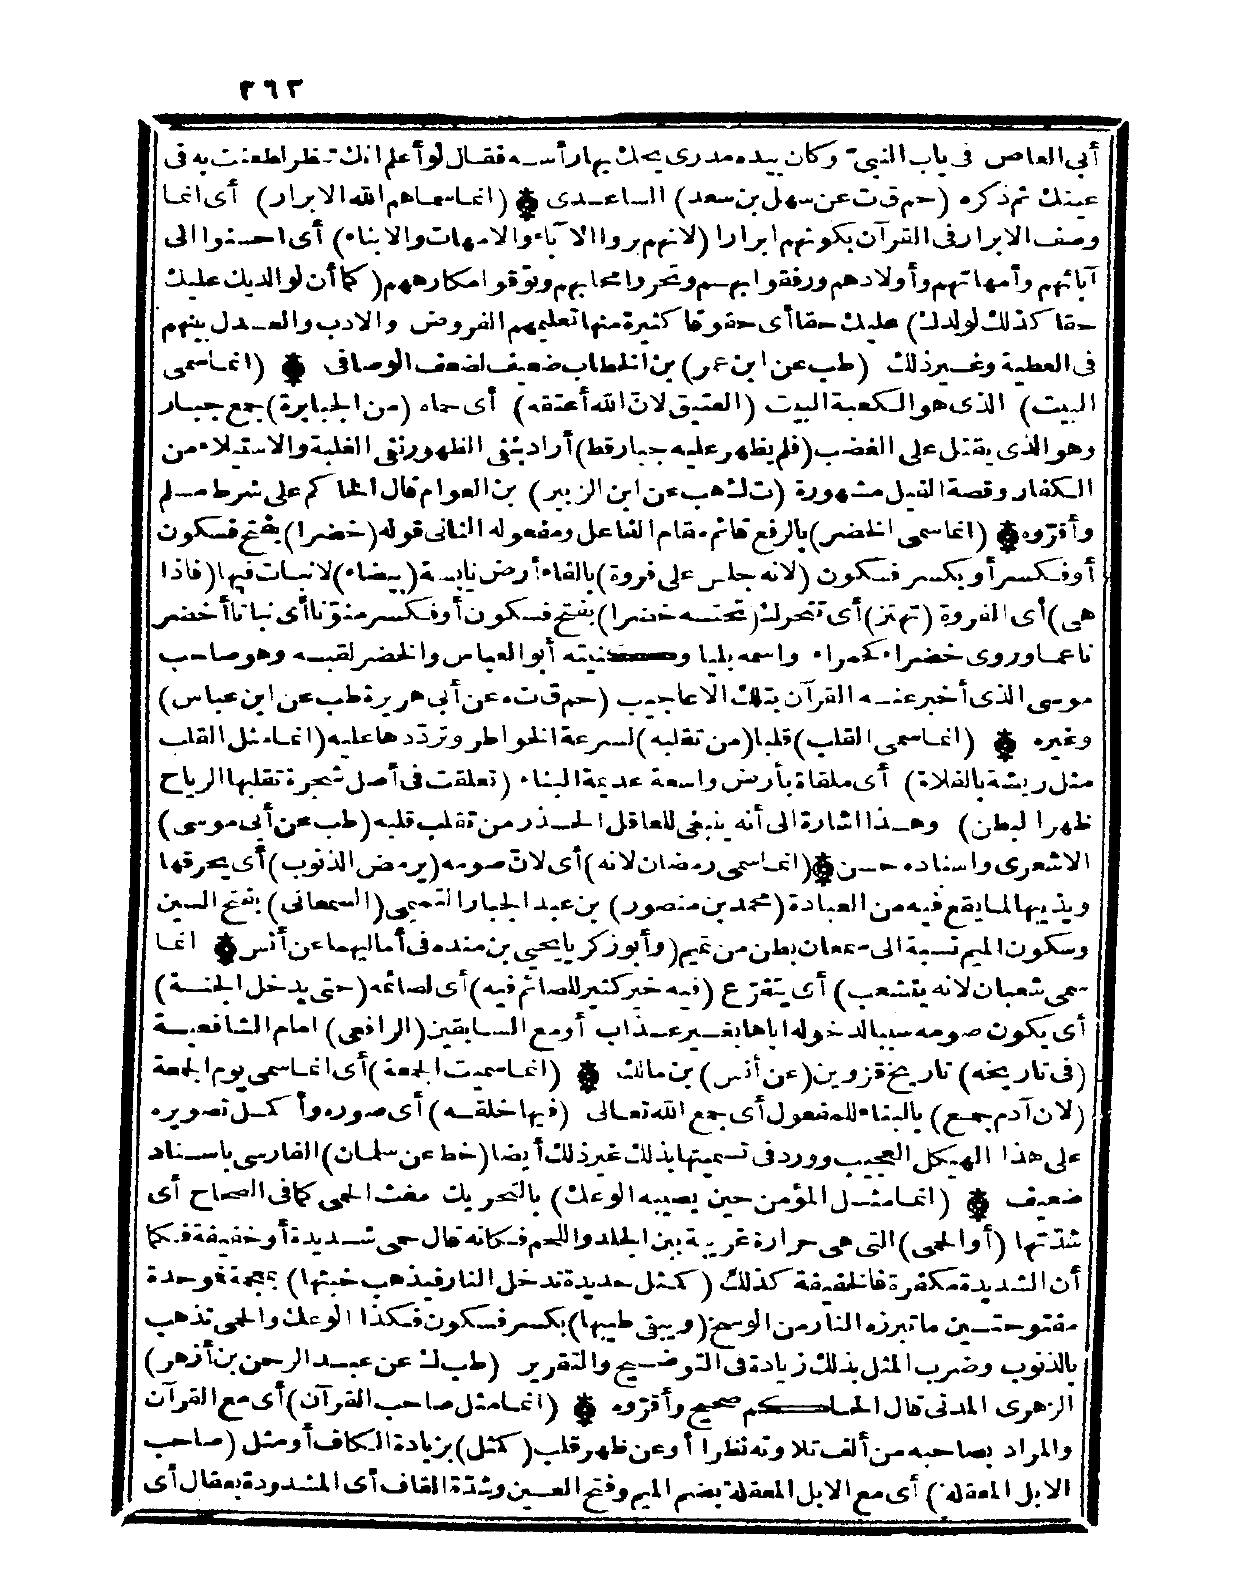 ٣٦٣
أبي العاص فى باب النبىّ وكان بيده مدرى يحك بها رأسه فقال لو أعلم انك تنظر لطعنت به فى
عينك ثم ذكره (حم ق ت عن سهل بن سعد) الساعدى ۞ (انما سماهم الله الابرار) أى انما
وصف الابرار فى القرآن بكونهم ابرارا (لانهم بروا الآباء والامهات والابناء) أى احسنوا الى
آبائهم وأمهاتهم وأولادهم ورفقوا بهم وتحروا محابهم وتوّقوا مكارههم (كما أن لوالديك عليك
حقا كذلك لولدك) عليك حقا أى حقوقا كثيرة منها تعليمهم الفروض والادب والعدل بينهم
فى العطية وغير ذلك (طب عن ابن عمر) بن الخطاب ضعيف لضعف الوصافى ۞ (انما سمى
البيت) الذى هو الكعبة البيت (العتيق لانّ الله أعتقه) أى حماه (من الجبابرة) جمع جبار
وهو الذى يقتل على الغضب (فلم يظهر عليه جبار قط) أراد بنفى الظهور نفى الغلبة والاستيلاء من
الكفار وقصة الفيل مشهورة (ت ك هب عن ابن الزبير) بن العوام قال الحاكم على شرط مسلم
وأقرّوه ۞ (انما سمى الخضر) بالرفع قائم مقام الفاعل ومفعوله الثانى قوله (خضرا) بفتح فسكون
أو فكسر أو بكسر فسكون (لانه جلس على فروة) بالفاء أرض يابسة (بيضاء) لا نبات فيها (فاذا
هى) أى الفروة (تهتز) أى تتحرك (تحته خضرا) بفتح فسكون أو فكسر منوّنا أى نباتا أخضر
ناعما وروى خضراء كحمراء واسمه بليا وكنيته أبو العباس والخضر لقبه وهو صاحب
موسى الذى أخبر عنه القرآن بتلك الاعاجيب (حم ق ت عن أبى هريرة طب عن ابن عباس)
وغيره ۞ (انما سمى القلب) قلبا (من تقلبه) لسرعة الخواطر وتردّدها عليه (انما مثل القلب
مثل ريشة بالفلاة) أى ملقاة بأرض واسعة عديمة البناء (تعلقت فى أصل شجرة تقلبها الرياح
ظهرا لبطن) وهذا اشارة الى أنه ينبغى للعاقل الحذر من تقلب قلبه (طب عن أبى موسى)
الاشعرى واسناده حسن ۞ (انما سمى رمضان لانه) أى لانّ صومه (يرمض الذنوب) أى يحرقها
ويذيبها لما يقع فيه من العبادة (محمد بن منصور) بن عبد الجبار التميمى (السمعانى) بفتح السين
وسكون الميم نسبة الى سمعان بطن من تميم (وأبو زكريا يحيى بن منده فى أماليهما عن أنس ۞ انما
سمى شعبان لانه يتشعب) أى يتفرّع (فيه خير كثير للصائم فيه) أى لصائمه (حتى يدخل الجنة)
أى يكون صومه سببا لدخوله اياها بغير عذاب أو مع السابقين (الرافعى) امام الشافعية
(فى تاريخه) تاريخ قزوين (عن أنس) بن مالك ۞ (انما سميت الجمعة) أى انما سمى يوم الجمعة
(لان آدم جمع) بالبناء للمفعول أى جمع الله تعالى (فيها خلقه) أى صوره وأكمل تصويره
على هذا الهيكل العجيب وورد فى تسميتها بذلك غير ذلك أيضا (خط عن سلمان) الفارسى باسناد
ضعيف ۞ (انما مثل المؤمن حين يصيبه الوعك) بالتحريك مغث الحمى كما فى الصحاح أى
شدّتها (أو الحمى) التى هى حرارة غريبة بين الجلد واللحم فكانه قال حمى شديدة أو خفيفة فكما
أن الشديدة مكفرة فالخفيفة كذلك (كمثل حديدة تدخل النار فيذهب خبثها) بمعجمة فموحدة
مفتوحتين ما تبرزه النار من الوسخ (ويبقى طيبها) بكسر فسكون فكذا الوعك والحمى تذهب
بالذنوب وضرب المثل بذلك زيادة فى التوضيح والتقرير (طب ك عن عبد الرحمن بن أزهر)
الزهرى المدنى قال الحاكم صحيح وأقرّوه ۞ (انما مثل صاحب القرآن) أى مع القرآن
والمراد بصاحبه من ألف تلاوته نظرا أو عن ظهر قلب (كمثل) بزيادة الكاف أو مثل (صاحب
الابل المعقلة) أى مع الابل المعقلة بضم الميم وفتح العين وشدّة القاف أى المشدودة بعقال أى